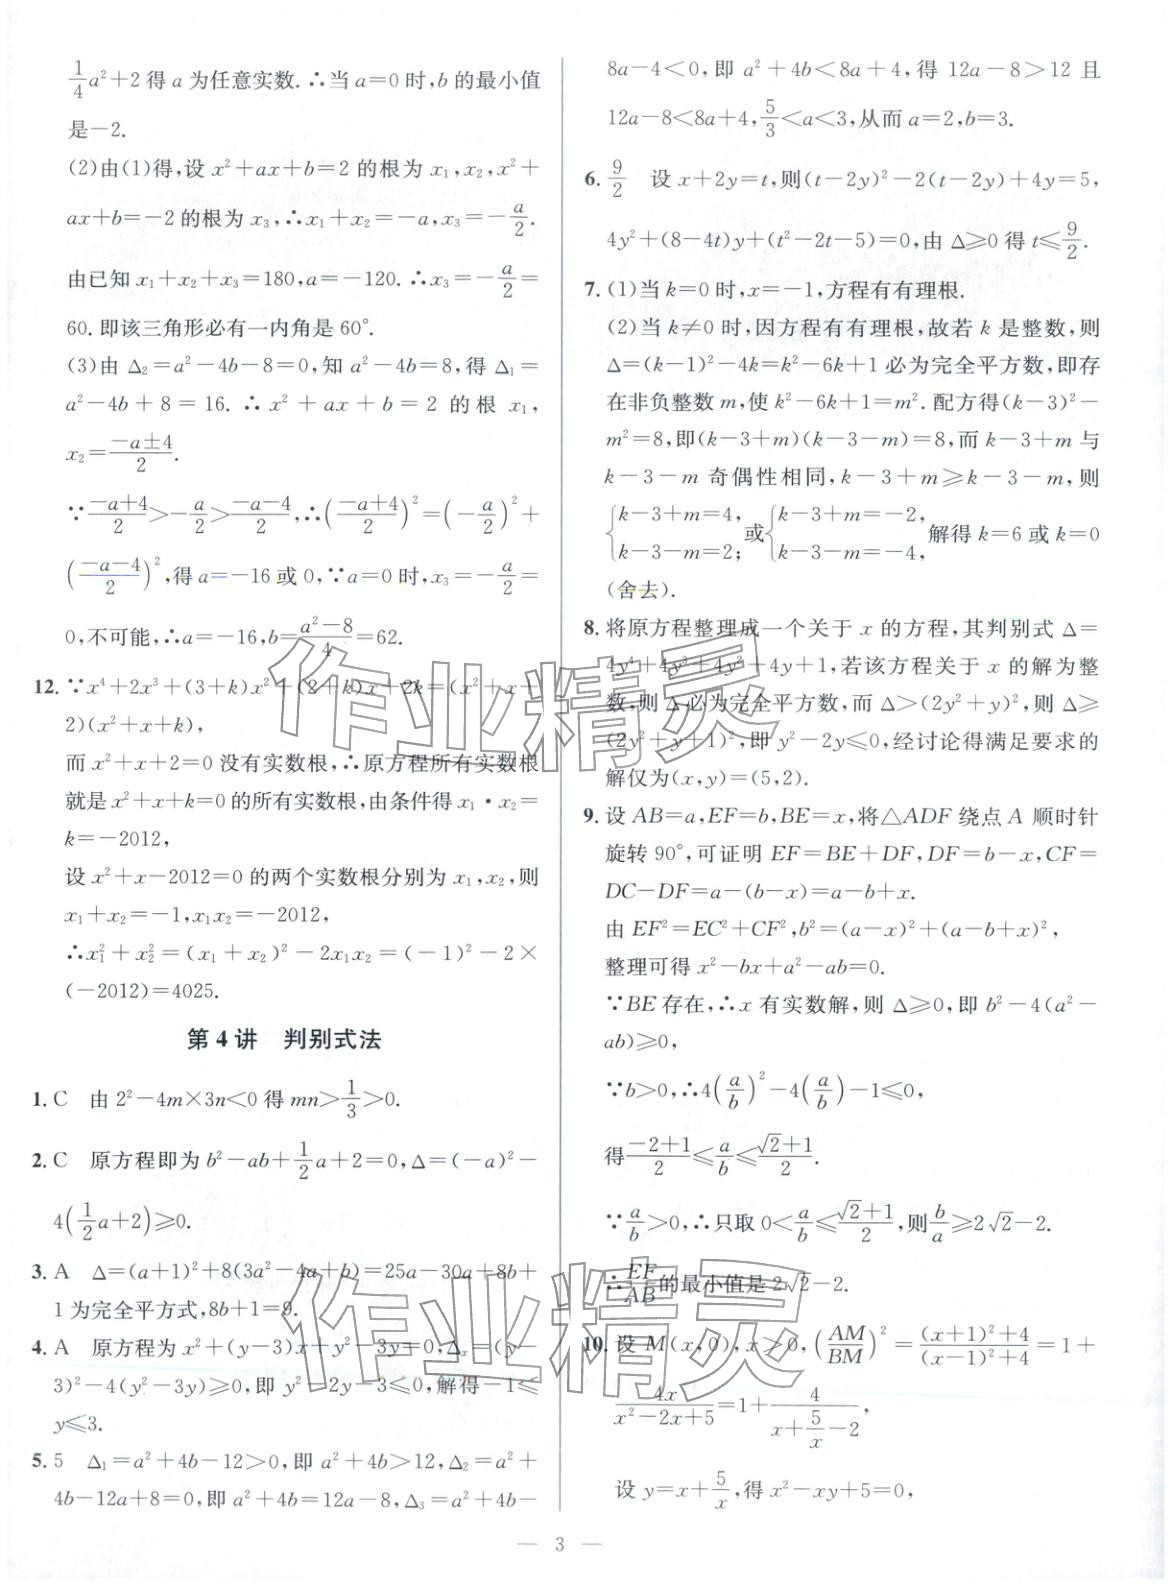 1/4 a²+2得a为任意实数.∴当a=0时,b的最小值
是-2.
(2)由(1)得,设x²+ax+b=2的根为x₁,x₂,x²+
ax+b=-2的根为x₃,∴x₁+x₂=-a,x₃=-a/2.
由已知x₁+x₂+x₃=180,a=-120.∴x₃=-a/2=
60.即该三角形必有一内角是60°.
(3)由Δ₂=a²-4b-8=0,知a²-4b=8,得Δ₁=
a²-4b+8=16.∴x²+ax+b=2的根x₁,
x₂=(-a±4)/2.
∵(-a+4)/2>-a/2>(-a-4)/2,∴((-a+4)/2)²=(-a/2)²+
((-a-4)/2)²,得a=-16或0,∵a=0时,x₃=-a/2=
0,不可能,∴a=-16,b=(a²-8)/4=62.
12. ∵x⁴+2x³+(3+k)x²+(2+k)x+2k=(x²+x+
2)(x²+x+k),
而x²+x+2=0没有实数根,∴原方程所有实数根
就是x²+x+k=0的所有实数根,由条件得x₁·x₂=
k=-2012,
设x²+x-2012=0的两个实数根分别为x₁,x₂,则
x₁+x₂=-1,x₁x₂=-2012,
∴x₁²+x₂²=(x₁+x₂)²-2x₁x₂=(-1)²-2×
(-2012)=4025.
第4讲 判别式法
1. C 由2²-4m×3n<0得mn>1/3>0.
2. C 原方程即为b²-ab+1/2 a+2=0,Δ=(-a)²-
4(1/2 a+2)≥0.
3. A Δ=(a+1)²+8(3a²-4a+b)=25a-30a+8b+
1为完全平方式,8b+1=9.
4. A 原方程为x²+(y-3)x+y²-3y=0,Δₓ=(y-
3)²-4(y²-3y)≥0,即y²-2y-3≤0,解得-1≤
y≤3.
5. 5 Δ₁=a²+4b-12>0,即a²+4b>12,Δ₂=a²+
4b-12a+8=0,即a²+4b=12a-8,Δ₃=a²+4b-
8a-4<0,即a²+4b<8a+4,得12a-8>12且
12a-8<8a+4,5/3<a<3,从而a=2,b=3.
6. 9/2 设x+2y=t,则(t-2y)²-2(t-2y)+4y=5,
4y²+(8-4t)y+(t²-2t-5)=0,由Δ≥0得t≤9/2.
7. (1)当k=0时,x=-1,方程有有理根.
(2)当k≠0时,因方程有有理根,故若k是整数,则
Δ=(k-1)²-4k=k²-6k+1必为完全平方数,即存
在非负整数m,使k²-6k+1=m².配方得(k-3)²-
m²=8,即(k-3+m)(k-3-m)=8,而k-3+m与
k-3-m奇偶性相同,k-3+m≥k-3-m,则
{k-3+m=4, k-3-m=2;或{k-3+m=-2, k-3-m=-4,解得k=6或k=0
(舍去).
8. 将原方程整理成一个关于x的方程,其判别式Δ=
4y⁴+4y³+4y²+4y+1,若该方程关于x的解为整
数,则Δ必为完全平方数,而Δ>(2y²+y)²,则Δ≥
(2y²+y+1)²,即y²-2y≤0,经讨论得满足要求的
解仅为(x,y)=(5,2).
9. 设AB=a,EF=b,BE=x,将△ADF绕点A顺时针
旋转90°,可证明EF=BE+DF,DF=b-x,CF=
DC-DF=a-(b-x)=a-b+x.
由EF²=EC²+CF²,b²=(a-x)²+(a-b+x)²,
整理可得x²-bx+a²-ab=0.
∵BE存在,∴x有实数解,则Δ≥0,即b²-4(a²-
ab)≥0,
∵b>0,∴4(a/b)²-4(a/b)-1≤0,
得(-2+1)/2≤a/b≤(√2+1)/2.
∵a/b>0,∴只取0<a/b≤(√2+1)/2,则b/a≥2√2-2.
∴EF/AB的最小值是2√2-2.
10. 设M(x,0),x≥0,(AM/BM)²=((x+1)²+4)/((x-1)²+4)=1+
4x/(x²-2x+5)=1+4/(x+5/x-2),
设y=x+5/x,得x²-xy+5=0,
— 3 —
作业精灵
作业精灵